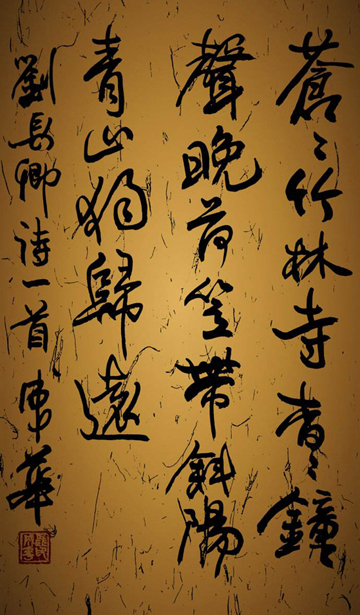 蒼〻竹林寺杳〻鐘
聲晚荷笠帶斜陽
青山獨歸遠
劉長卿詩一首 華